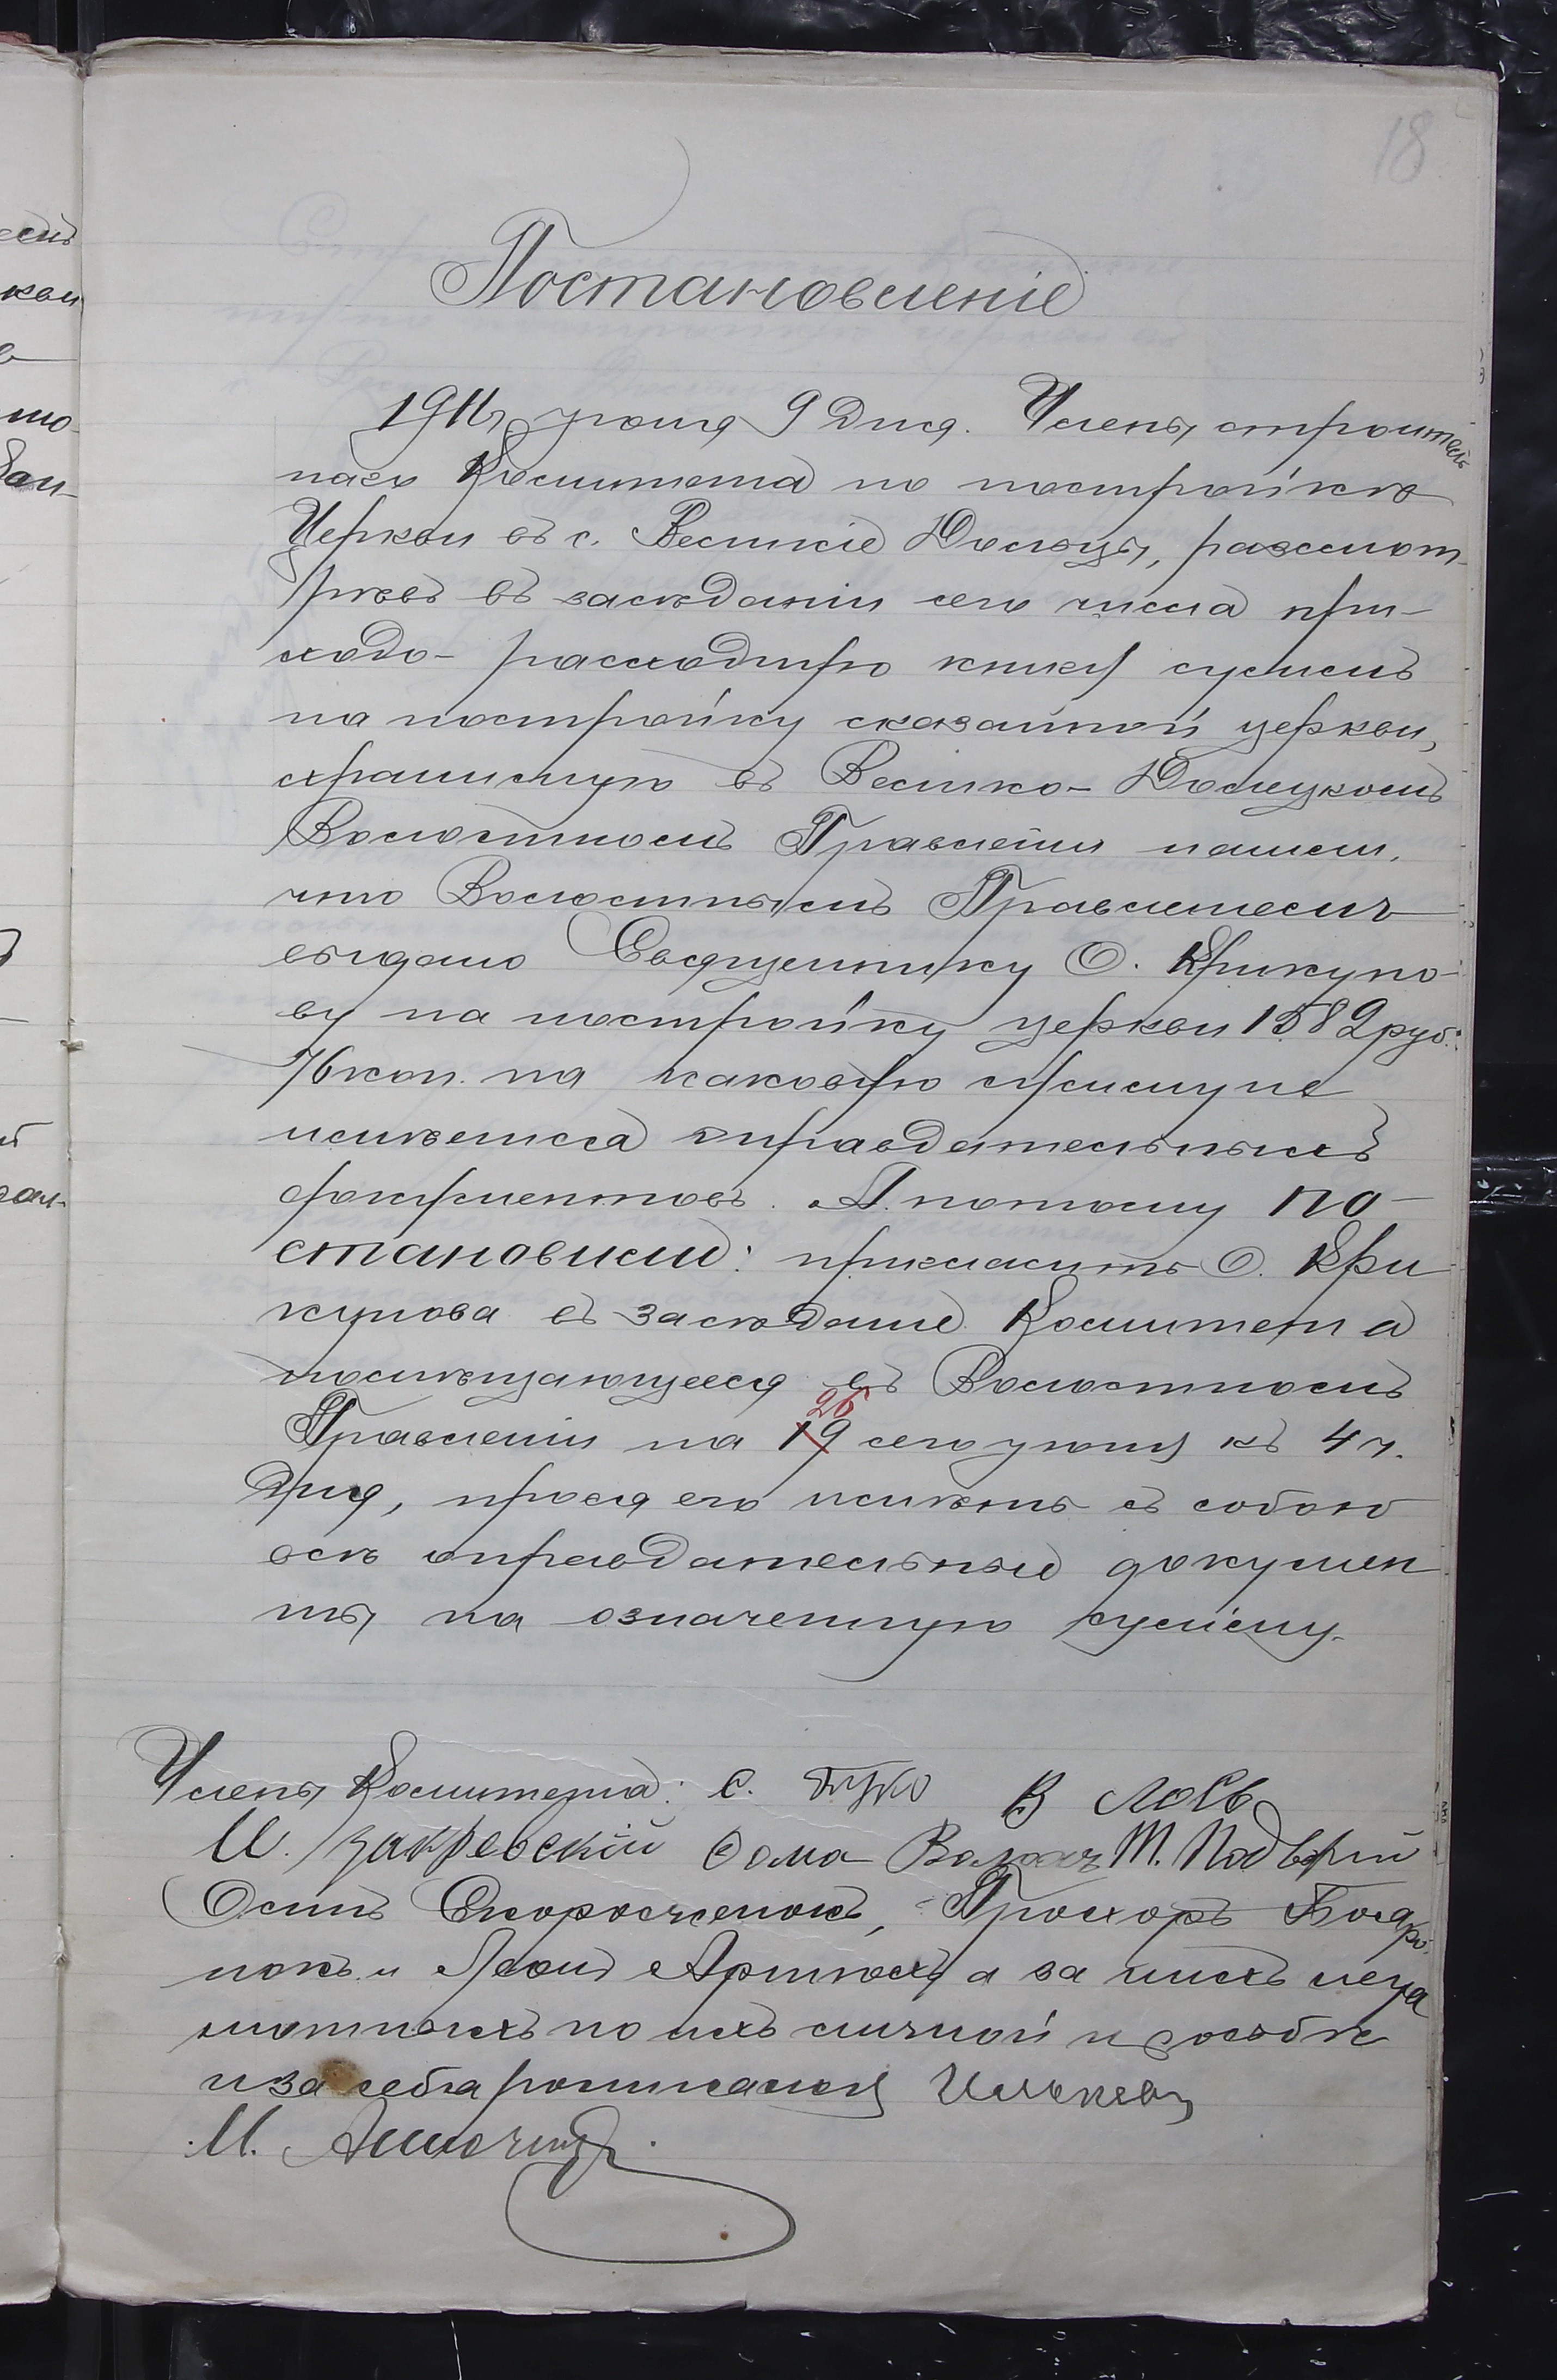 18
Постановленіе
1911 г. іюня 9 дня. Члены строитель
наго Комитета по постройкѣ
Церкви въ с. Великіе Дольцы, разсмот-
рѣвъ въ засѣданіи сего числа при-
ходо-расходную книгу суммъ
на постройку сказанной церкви,
хранимую въ Велико-Долецкомъ
Волостномъ Правленіи нашли,
что Волостнымъ Правленіемъ
выдано Священнику О. Крикуно-
ву на постройку церкви 1582 руб.
76 коп. на каковую сумму не
имѣется оправдательныхъ
документовъ. А потому по-
становили: пригласить О. Кри
кунова въ засѣданіе Комитета
помѣщающееся въ Волостномъ
26
Правленіи на 19 сего іюня къ 4 ч.
Дня, прося его имѣть съ собою
всѣ оправдательные докумен
ты на означенную сумму.
Члены Комитета: С. В Лось
И. Закревскій Фома Т.
Осипъ Скоросченокъ, Прохоръ
нокъ и а за нихъ негра
мотныхъ по ихъ личной просьбѣ
и за себя росписался
М.